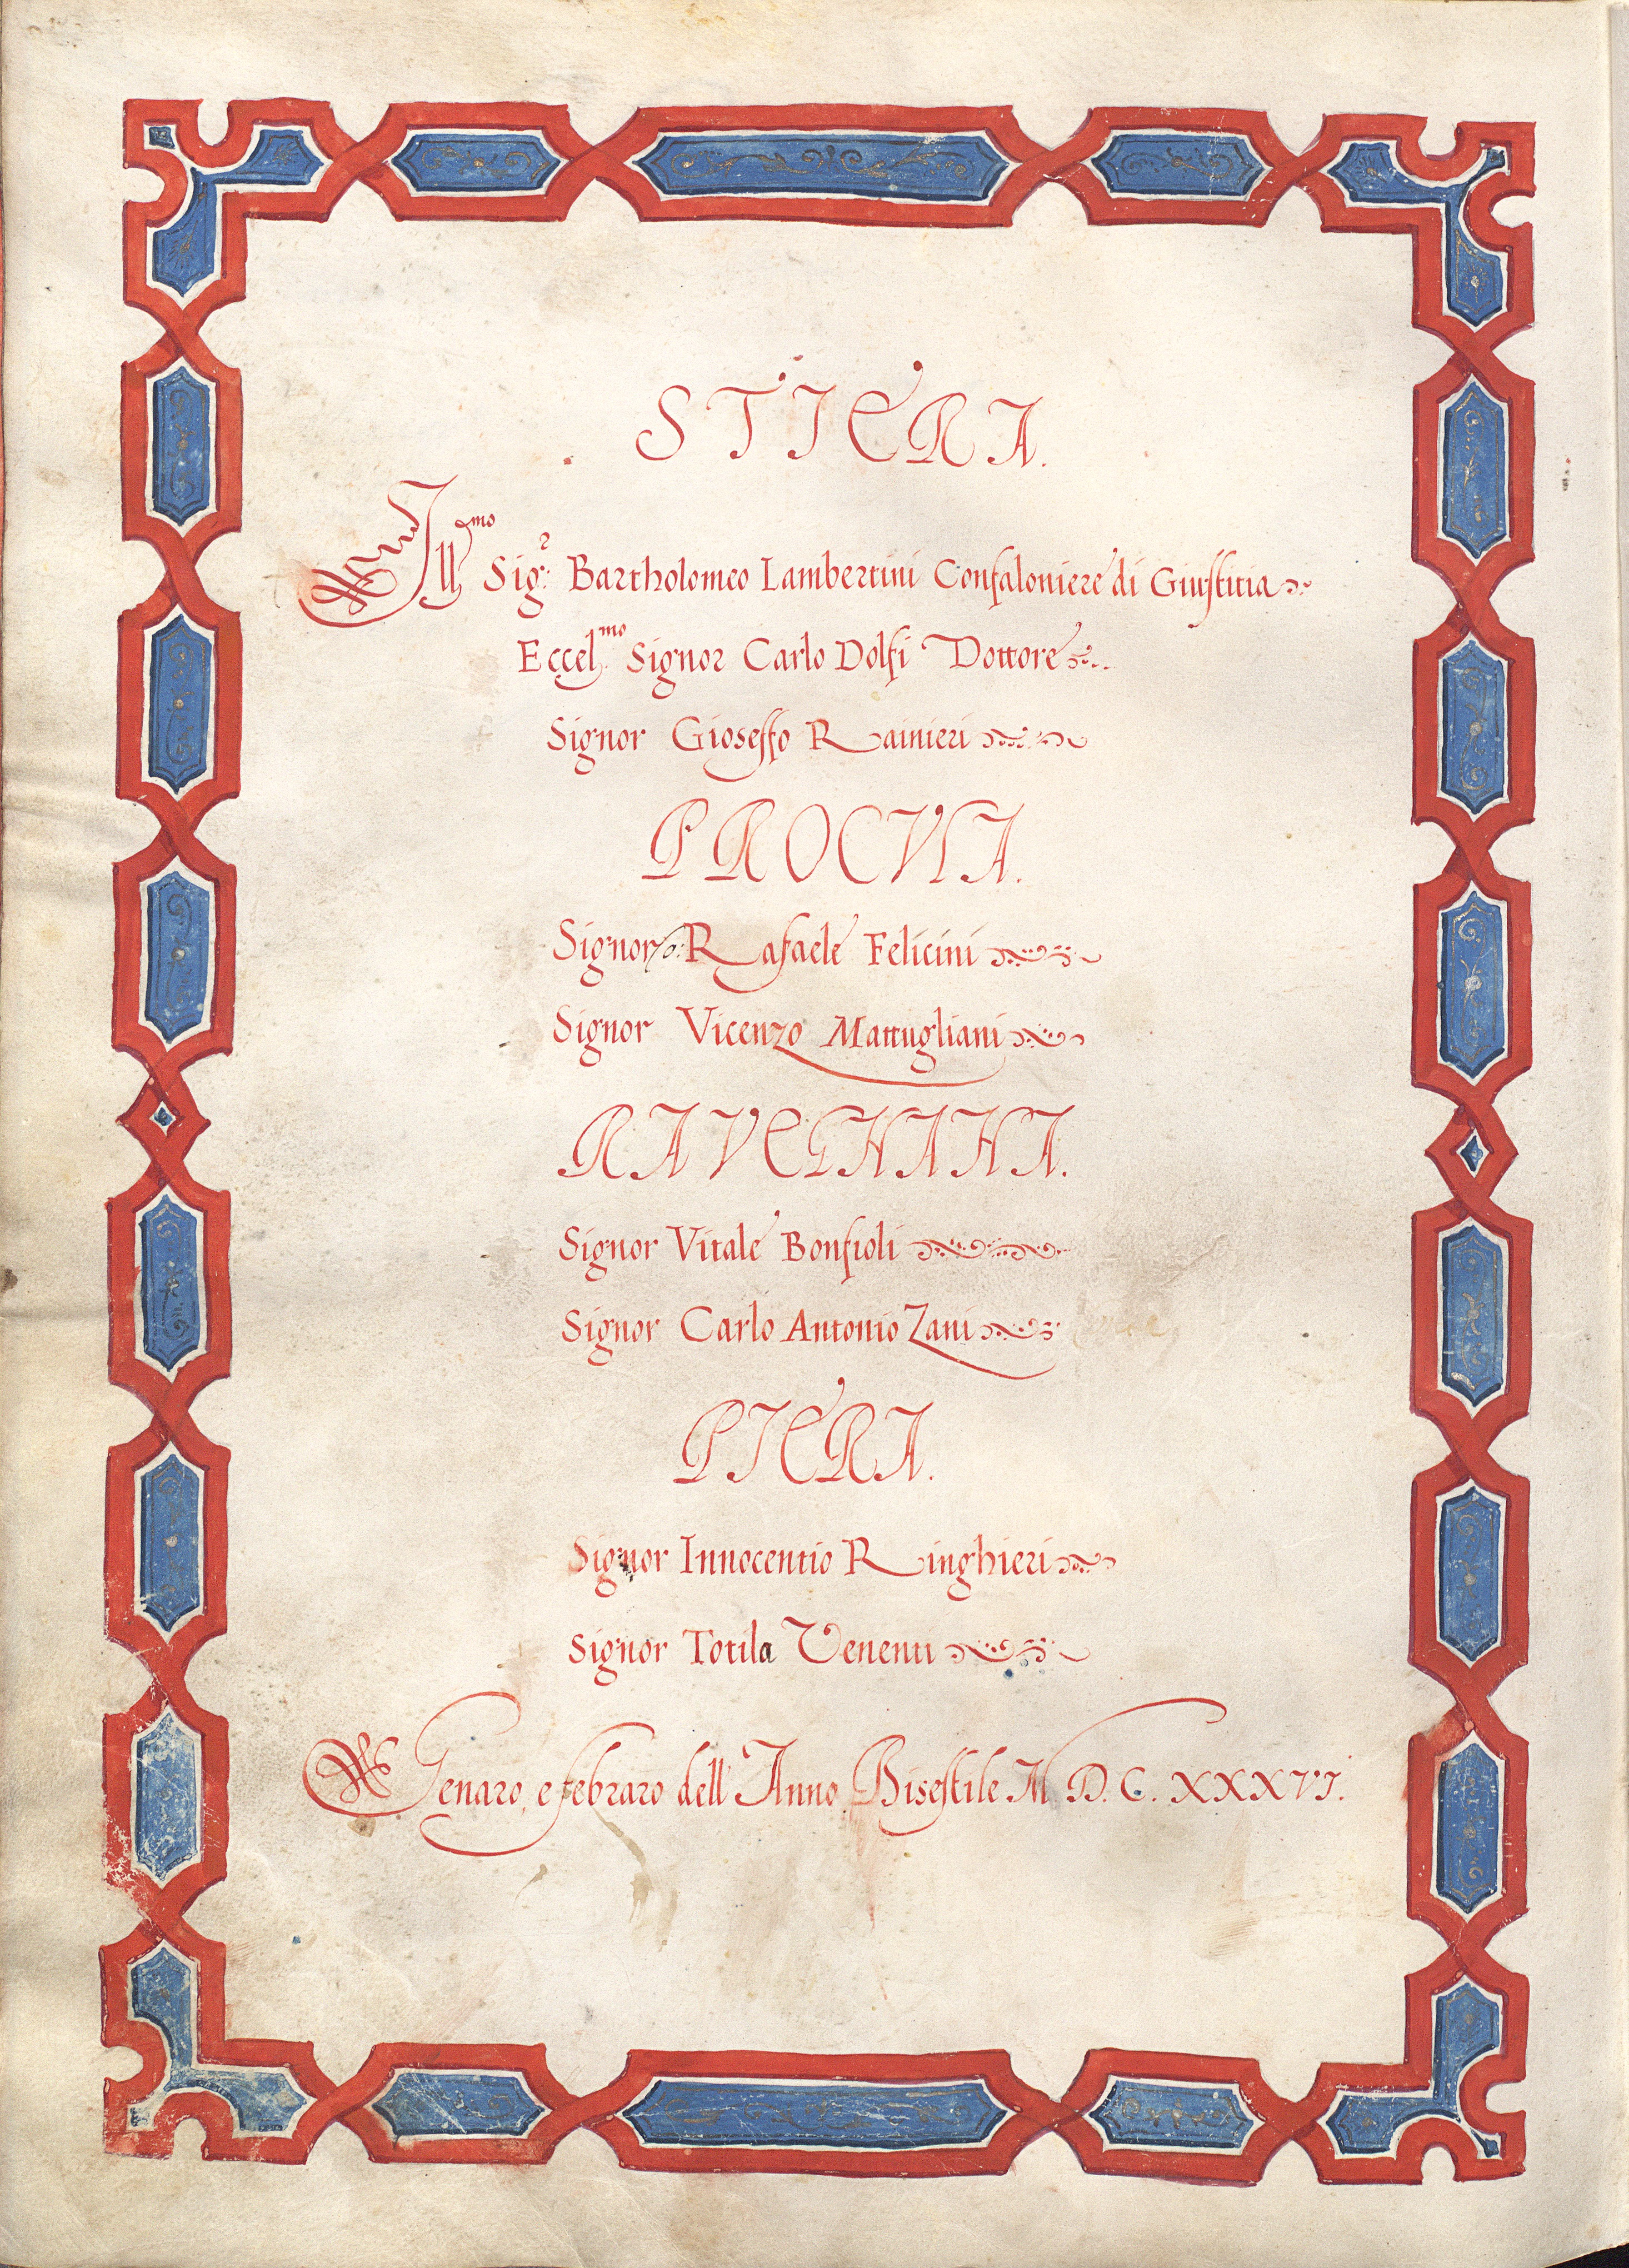 STIERA.
Ill.mo Sig.r Bartholomeo Lambertini Confaloniere di Giustitia
Eccel.mo Signor Carlo Dolfi Dottore
Signor Gioseffo Rainieri
PROCVLA.
Signor Rafaele Felicini
Signor Vicenzo Mattugliani
RAVEGNANA.
Signor Vitale Bonfioli
Signor Carlo Antonio Zani
PIERA.
Signor Innocentio Ringhieri
Signor Totila Venenti
Genaro, e febraro dell'Anno Bisestile M D. C. XXXVI.